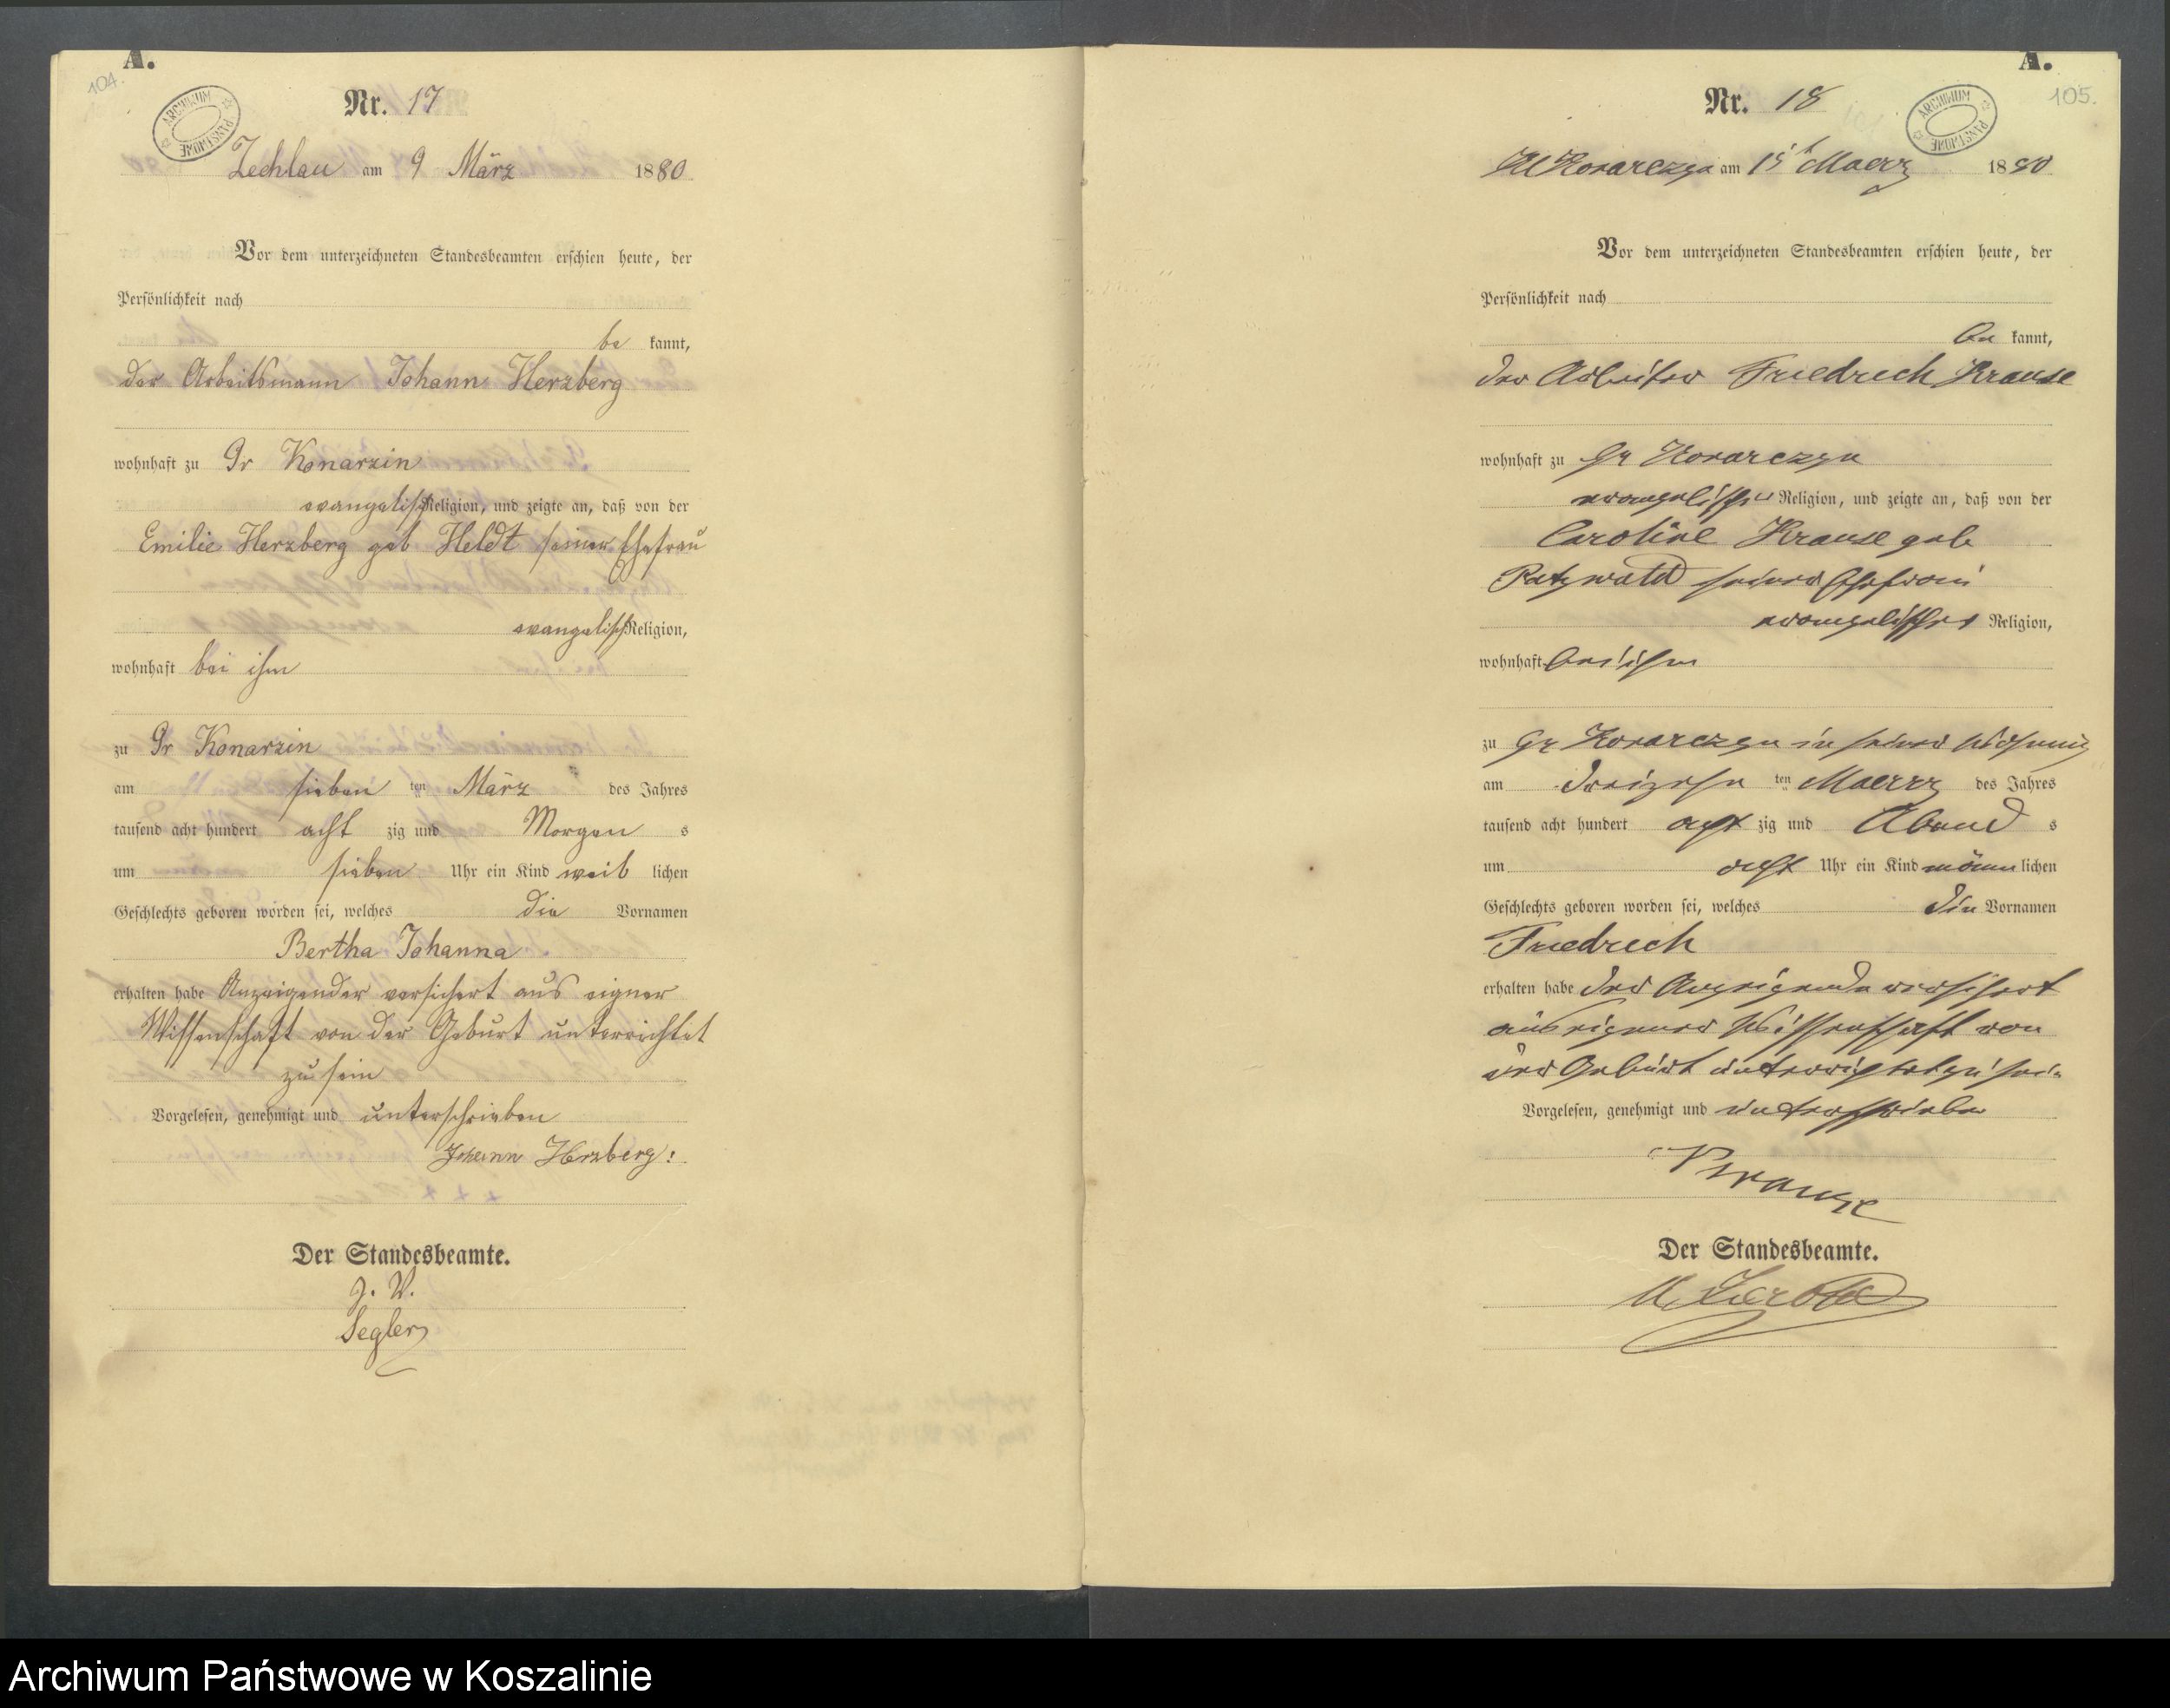 104.
A.
ARCHIWUM PAŃSTWOWE
Nr. 17
Zechlau am 9 März 1880
Vor dem unterzeichneten Standesbeamten erschien heute, der
Persönlichkeit nach
be kannt,
der Arbeitsmann Johann Herzberg
wohnhaft zu Gr Konarzin
evangelisch Religion, und zeigte an, daß von der
Emilie Herzberg geb Heldt seiner Ehefrau
evangelisch Religion,
wohnhaft bei ihm
zu Gr Konarzin
am sieben ten März des Jahres
tausend acht hundert acht zig und Morgen s
um sieben Uhr ein Kind weib lichen
Geschlechts geboren worden sei, welches die Vornamen
Bertha Johanna
erhalten habe Anzeigender versichert aus eigner
Wissenschaft von der Geburt unterrichtet
zu sein
Vorgelesen, genehmigt und unterschrieben
Johann Herzberg:
+ + +
Der Standesbeamte.
J. V.
Segler
A.
105.
ARCHIWUM PAŃSTWOWE
Nr. 18
am 15t Maerz 1880
Vor dem unterzeichneten Standesbeamten erschien heute, der
Persönlichkeit nach
be kannt,
der Arbeiter Friedrich Krause
wohnhaft zu Gr
evangelischer Religion, und zeigte an, daß von der
Caroline Krause geb
seiner Ehefrau
evangelischer Religion,
wohnhaft bei ihm
zu Gr in seiner Wohnung
am dreizehn ten Maerz des Jahres
tausend acht hundert acht zig und Abend s
um acht Uhr ein Kind männ lichen
Geschlechts geboren worden sei, welches die Vornamen
Friedrich
erhalten habe der Anzeigende versichert
aus eigener Wissenschaft von
der Geburt unterrichtet zu sein
Vorgelesen, genehmigt und unterschrieben
Krause
Der Standesbeamte.
Archiwum Państwowe w Koszalinie